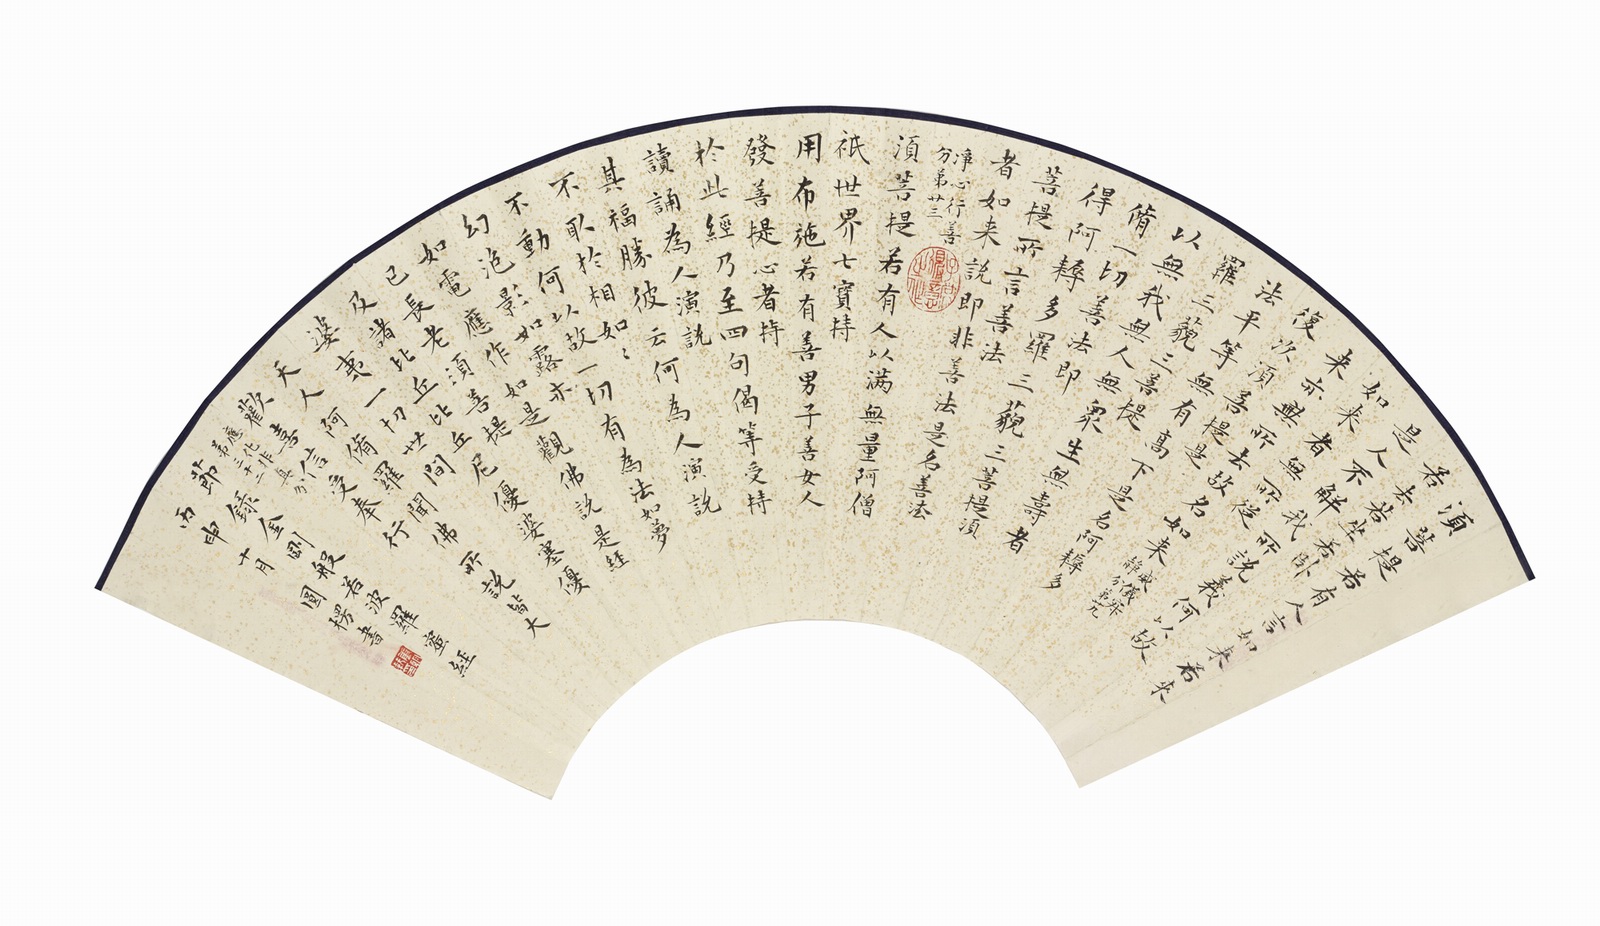 須菩提若有人言如来若来
若去若坐若卧
是人不解我所説義何以故
如来者無所從
来亦無所去故名如来
威儀寂
靜分第廿九
復次須菩提是
法平等無有高下是名阿耨多
羅三藐三菩提
以無我無人無衆生無壽者
脩一切善法即
得阿耨多羅三藐三菩提須
菩提所言善法
者如来説即非善法是名善法
淨心行善
分第廿三
須菩提若有人以滿無量阿僧
祇世界七寶持
用布施若有善男子善女人
發菩提心者持
於此經乃至四句偈等受持
讀誦為人演説
其福勝彼云何為人演説
不取於相如〻
不動何以故一切有為法如夢
幻泡影如露亦
如電應作如是觀佛説是経
已長老須菩提
及諸比丘比丘尼優婆塞優
婆夷一切世間
天人阿脩羅聞佛所説皆大
歡喜信受奉行
應化非真分
第三十二
節錄金剛般若波羅蜜経
丙申十月圓楞書